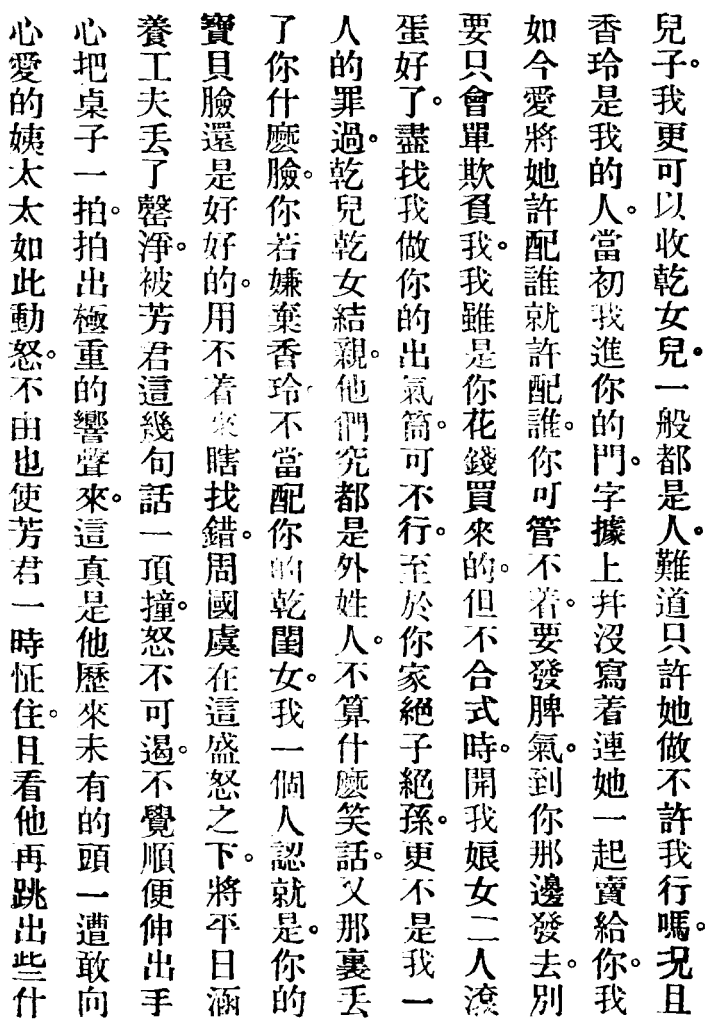 兒子。我更可以收乾女兒。一般都是人。難道只許她做不許我行嗎。况且
香玲是我的人。當初我進你的門。字據上并沒寫着連她一起賣給你。我
如今愛將她許配誰就許配誰。你可管不着。要發脾氣。到你那邊發去。別
要只會單欺負我。我雖是你花錢買來的。但不合式時。開我娘女二人滾
蛋好了。盡找我做你的出氣筒。可不行。至於你家絕子絕孫。更不是我一
人的罪過。乾兒乾女結親。他們究都是外姓人。不算什麽笑話。又那裏丟
了你什麽臉。你若嫌棄香玲不當配你的乾閨女。我一個人認就是。你的
寶貝臉還是好好的。用不着來瞎找錯。周國虞在這盛怒之下。將平日涵
養工夫丟了罄淨。被芳君這幾句話一頂撞。怒不可遏。不覺順便伸出手
心把桌子一拍。拍出極重的響聲來。這真是他歷來未有的頭一遭敢向
心愛的姨太太如此動怒。不由也使芳君一時怔住。且看他再跳出些什